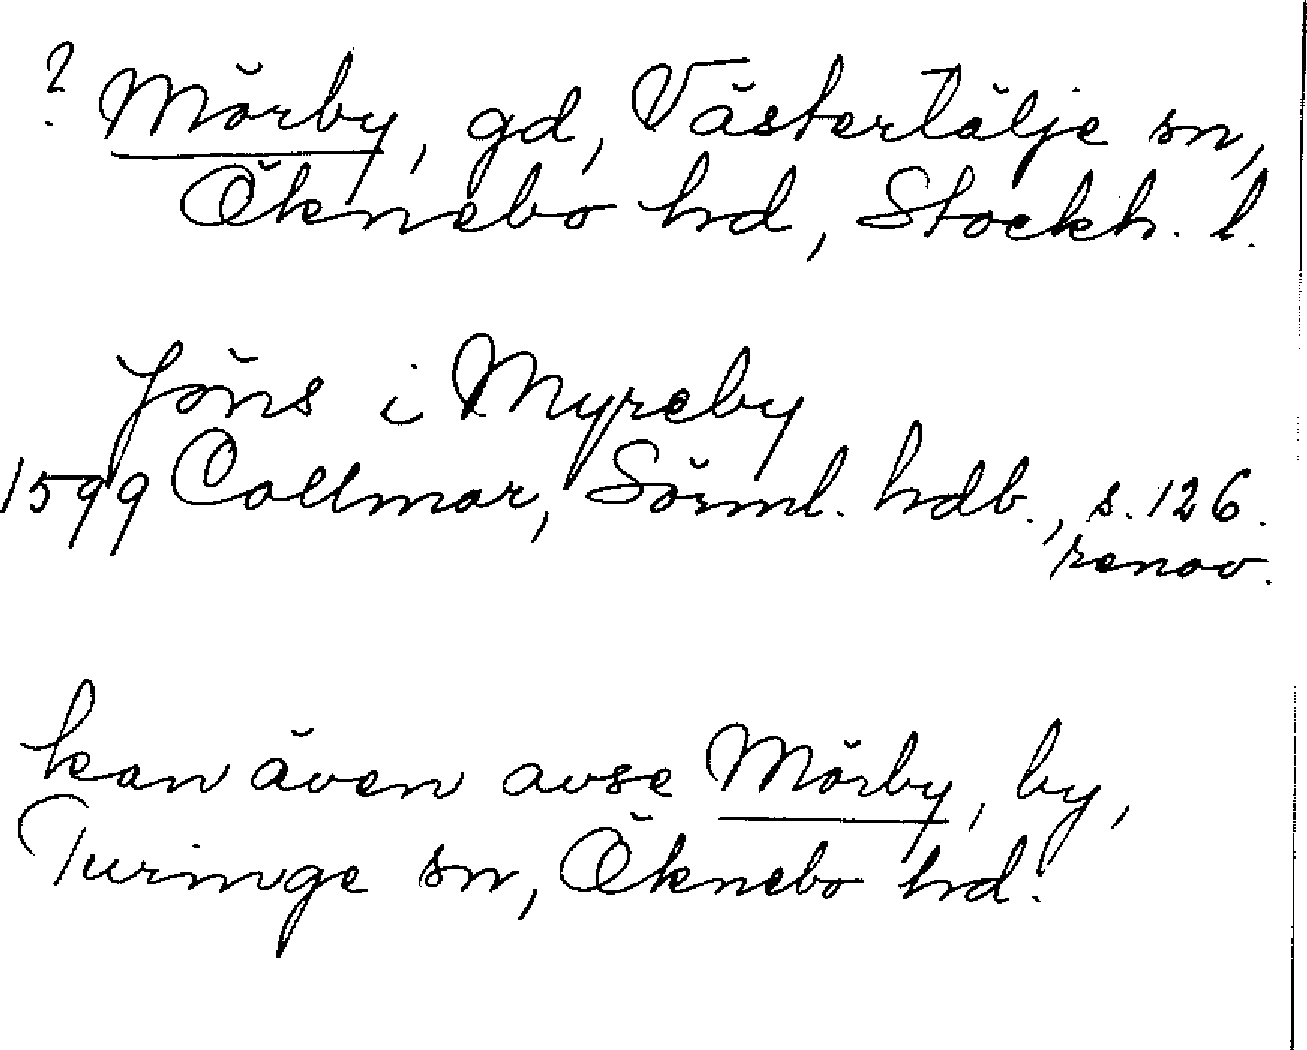 ? Mörby, gd, Västertälje sn,
Öknebo hd, Stockh. l.
Jöns i Myreby
1599 Collmar, Sörml. hdb., s. 126.
renov.
kan även avse Mörby, by,
Turinge sn, Öknebo hd.